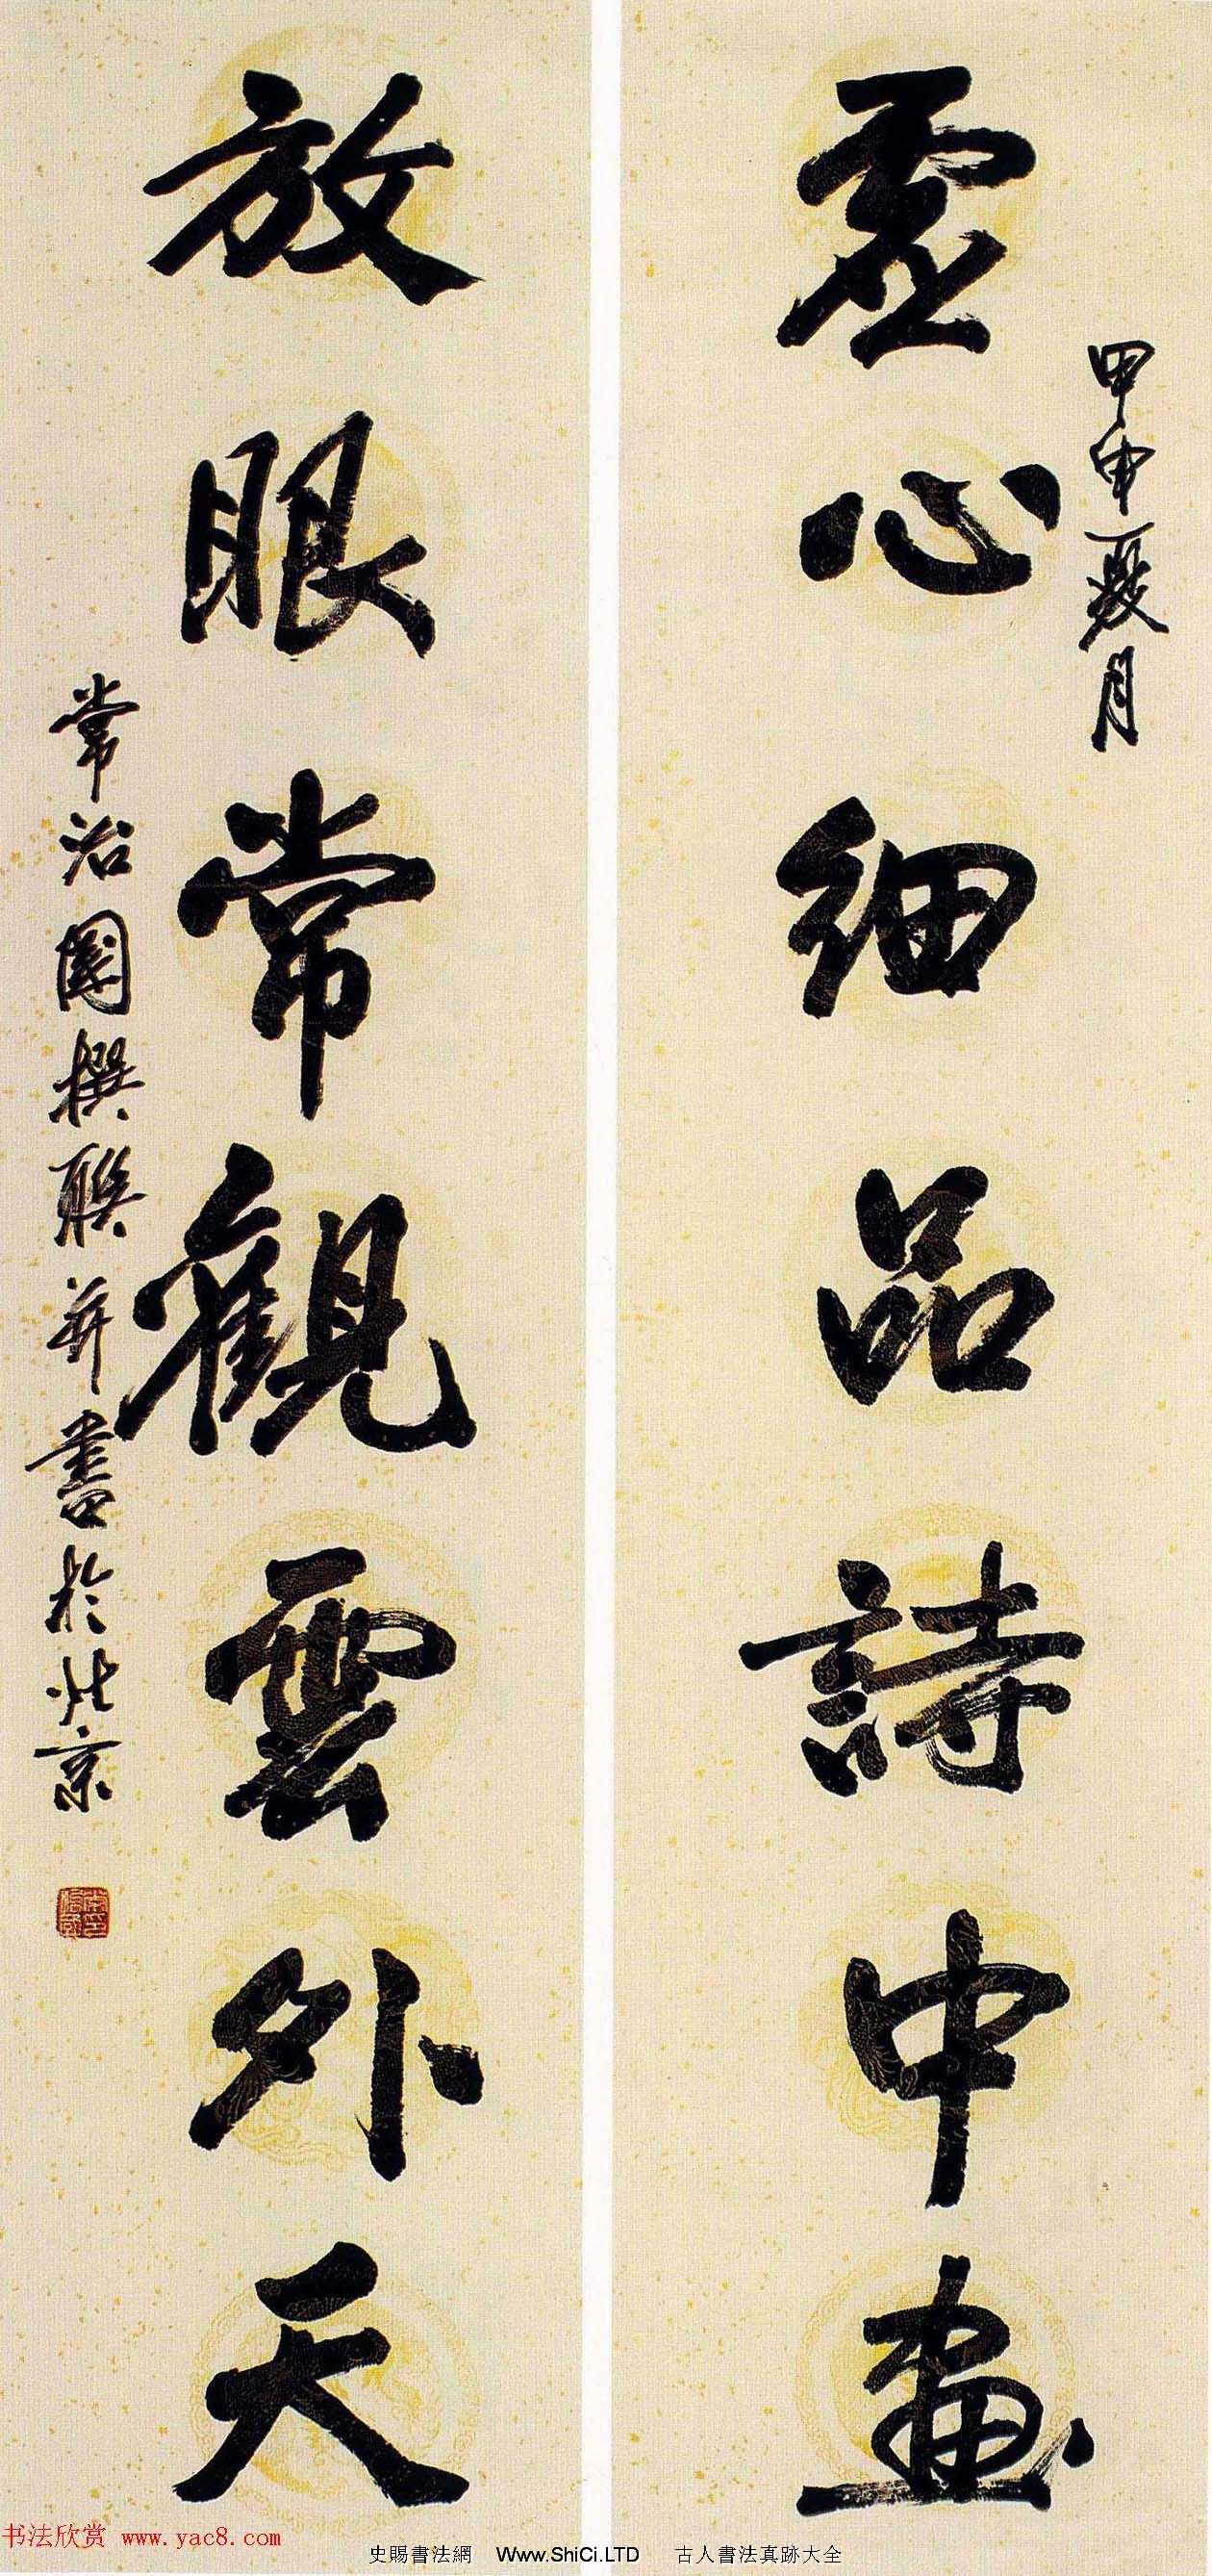 甲申夏月
虛心細品詩中畫
放眼常觀雲外天
常治國撰聯并書於北京
书法欣赏 www.yac8.com
史賜書法網 Www.ShiCi.LTD 古人書法真跡大全